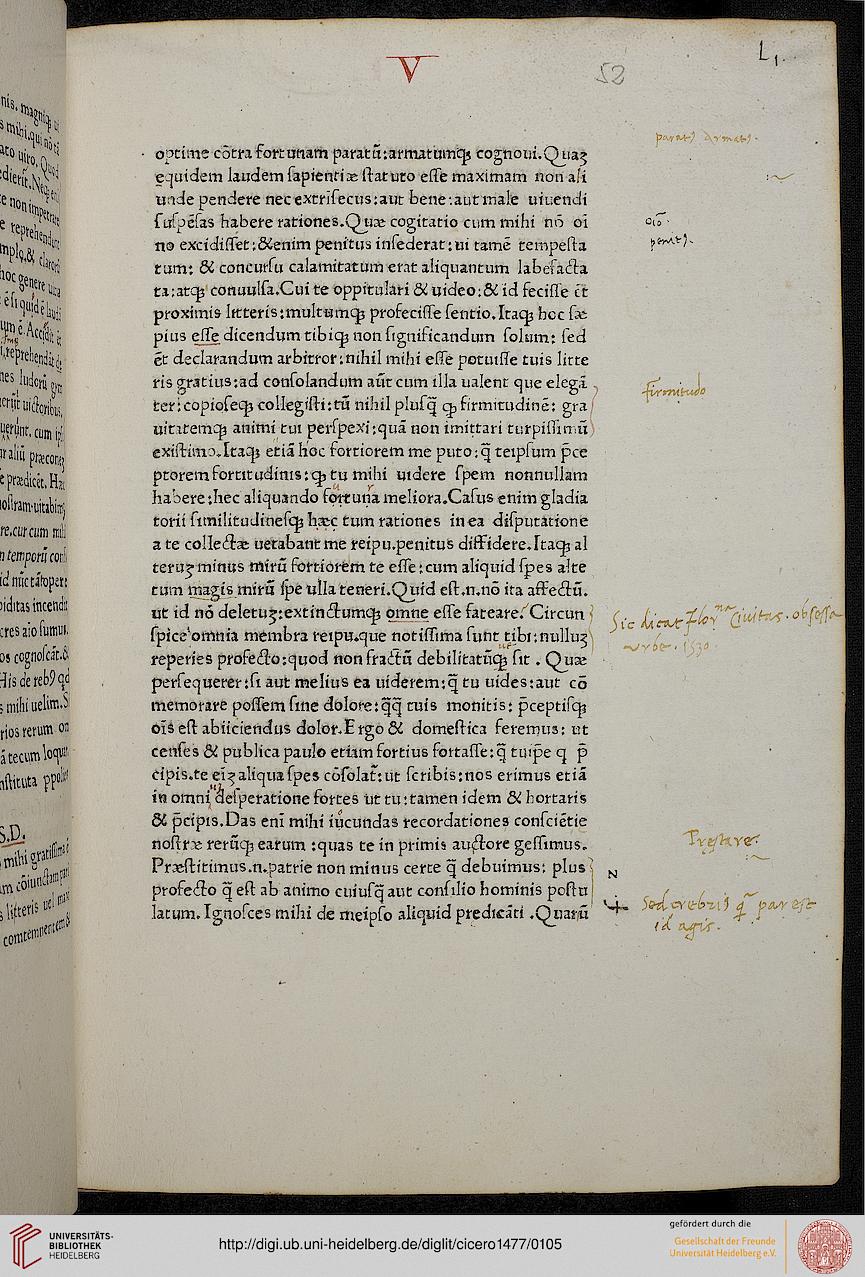 V
52
L1.
optime cōtra fortunam paratū:armatumqꝫ cognoui.Quaꝫ
equidem laudem sapientiæ statuto esse maximam non ali
unde pendere nec extrīsecus:aut bene:aut male uiuendi
suspēsas habere rationes.Quæ cogitatio cum mihi nō oī
no excidisset:&enim penitus insederat:ui tamē tempesta
tum: & concursu calamitatum erat aliquantum labefacta
ta:atqꝫ conuulsa.Cui te oppitulari & uideo:& id fecisse ēt
proximis litteris:multumqꝫ profecisse sentio.Itaqꝫ hoc sæ
pius esse dicendum tibiqꝫ non significandum solum: sed
ēt declarandum arbitror:nihil mihi esse potuisse tuis litte
ris gratius:ad consolandum aūt cum illa ualent que elegā
ter:copioseqꝫ collegisti:tū nihil plusq̄ ꝙ firmitudinē: gra
uitatemqꝫ animi tui perspexi:quā non imittari turpissimū
existimo.Itaqꝫ etiā hoc fortiorem me puto:q̄ teipsum p̄ce
ptorem fortitudinis:ꝙ tu mihi uidere spem nonnullam
habere:hec aliquando fortuna meliora.Casus enim gladia
torii similitudinesqꝫ hæc tum rationes in ea disputatione
a te collectæ uetabant me reipu.penitus diffidere.Itaqꝫ al
teruꝫ minus mirū fortiorem te esse:cum aliquid spes alte
rum magis mirū spe ulla teneri.Quid est.n.nō ita affectū.
ut id nō deletuꝫ:extinctumqꝫ omne esse fateare. Circun
spice omnia membra reipu.que notissima sunt tibi:nulluꝫ
reperies profecto:quod non fractū debilitatūqꝫ sit . Quæ
persequerer:si aut melius ea uiderem:q̄ tu uides:aut cō
memorare possem sine dolore:q̄q̄ tuis monitis: p̄ceptisqꝫ
oīs est abiiciendus dolor.Ergo & domestica feremus: ut
censes & publica paulo etiam fortius fortasse:q̄ tuip̄e q p̄
cipis.te eīꝫ aliqua spes cōsolat̄:ut scribis:nos erimus etiā
in omni desperatione fortes ut tu:tamen idem & hortaris
& p̄cipis.Das enī mihi iucundas recordationes consciētie
nostræ rerūqꝫ earum :quas te in primis auctore gessimus.
Præstitimus.n.patrie non minus certe q̄ debuimus: plus
profecto q̄ est ab animo cuiusq̄ aut consilio hominis postu
latum. Ignosces mihi de meipso aliquid predicāti .Quarū
Firmitudo
Sic dicat Flor na Ciuitas. obsessa
urbe. 1530
Prestare.
N
Sed crebris q̄ par est
id agis.
S.D.
UNIVERSITÄTS-
BIBLIOTHEK
HEIDELBERG
http://digi.ub.uni-heidelberg.de/diglit/cicero1477/0105
gefördert durch die
Gesellschaft der Freunde
Universität Heidelberg e.V.